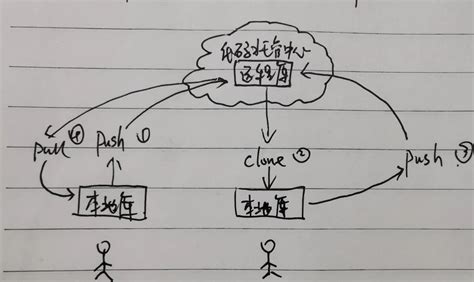 代码托管中心
远程库
pull ④
push ①
clone ②
push ③
本地库
本地库